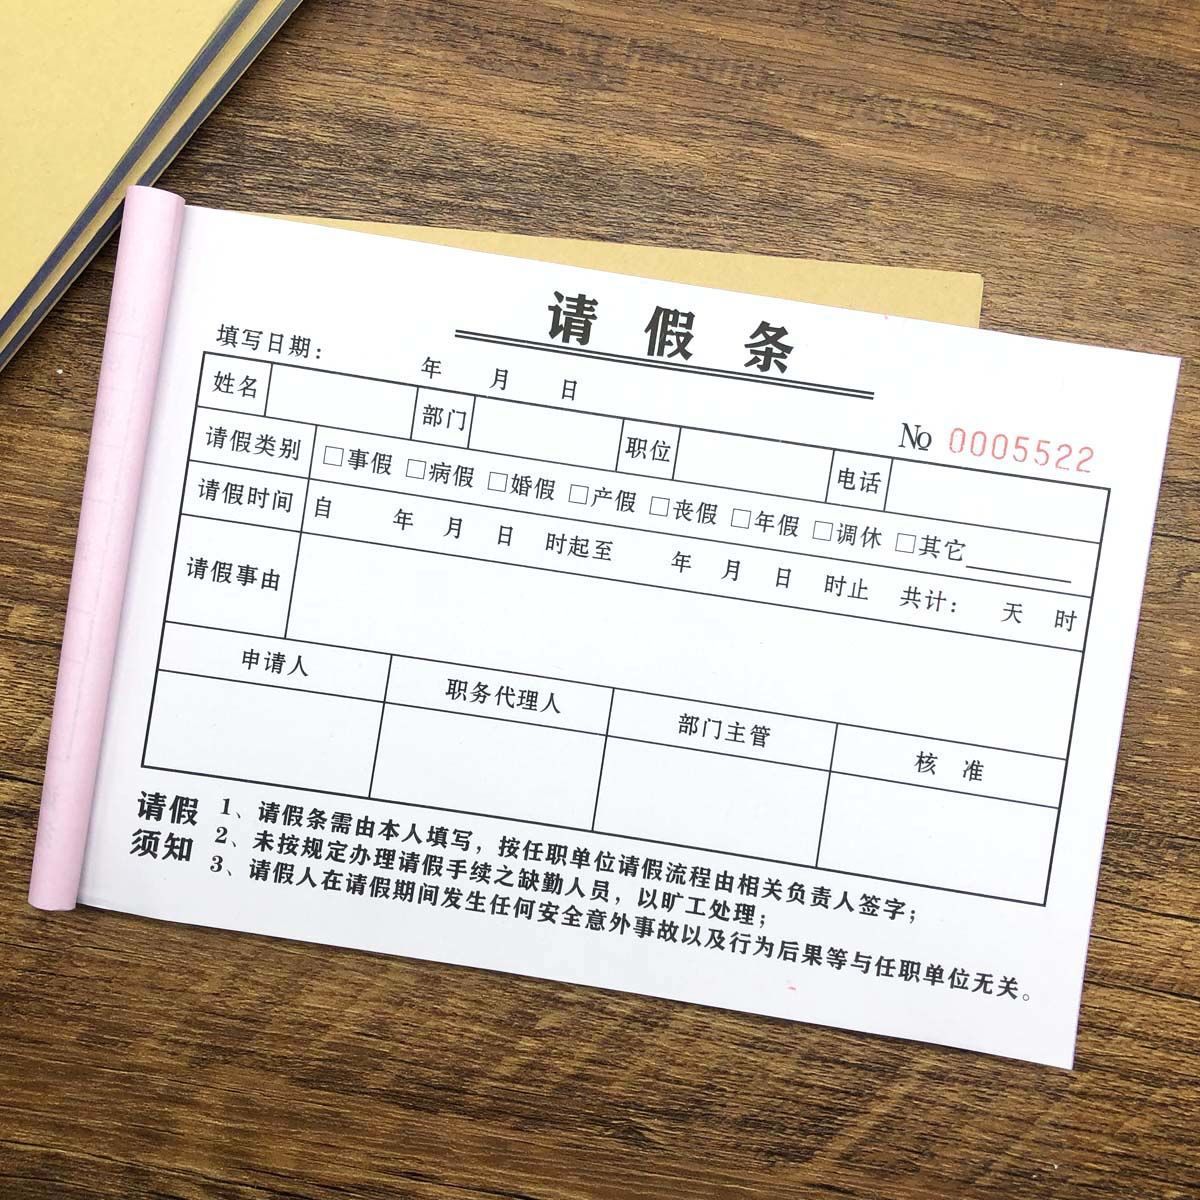 请假条
填写日期： 年 月 日
№ 0005522
姓名 部门 职位 电话
请假类别 □事假 □病假 □婚假 □产假 □丧假 □年假 □调休 □其它______
请假时间 自 年 月 日 时起至 年 月 日 时止 共计： 天 时
请假事由
申请人 职务代理人 部门主管 核 准
请假须知
1、请假条需由本人填写，按任职单位请假流程由相关负责人签字；
2、未按规定办理请假手续之缺勤人员，以旷工处理；
3、请假人在请假期间发生任何安全意外事故以及行为后果等与任职单位无关。